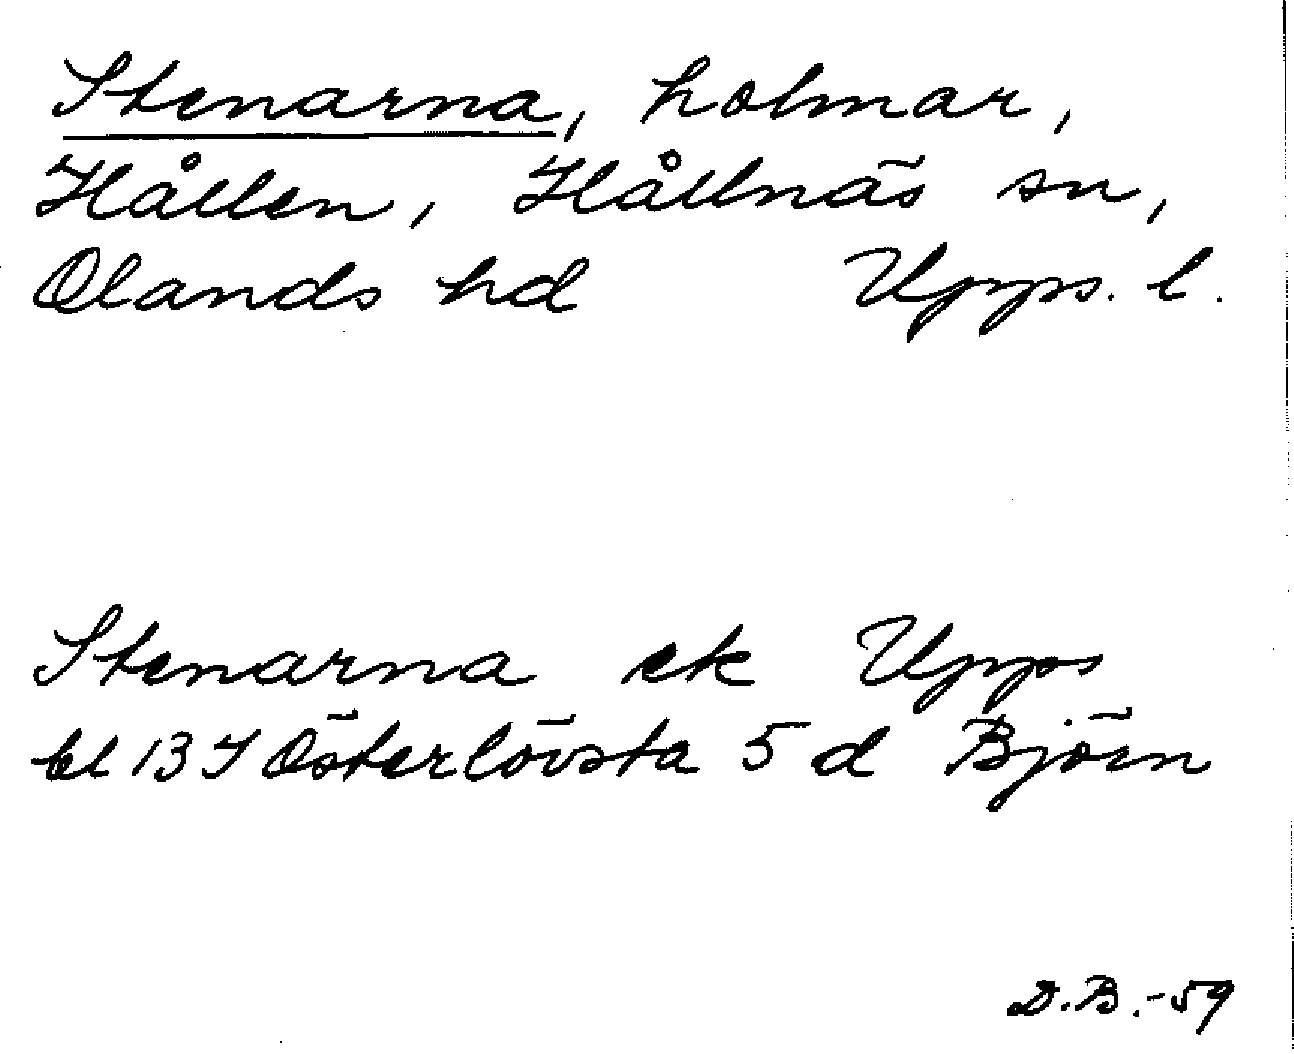 Stenarna, holmar,
Hållen, Hållnäs sn,
Olands hd Upps. l.
Stenarna ek Upps
bl 13 I Österlövsta 5 d Björn
D.B.-59